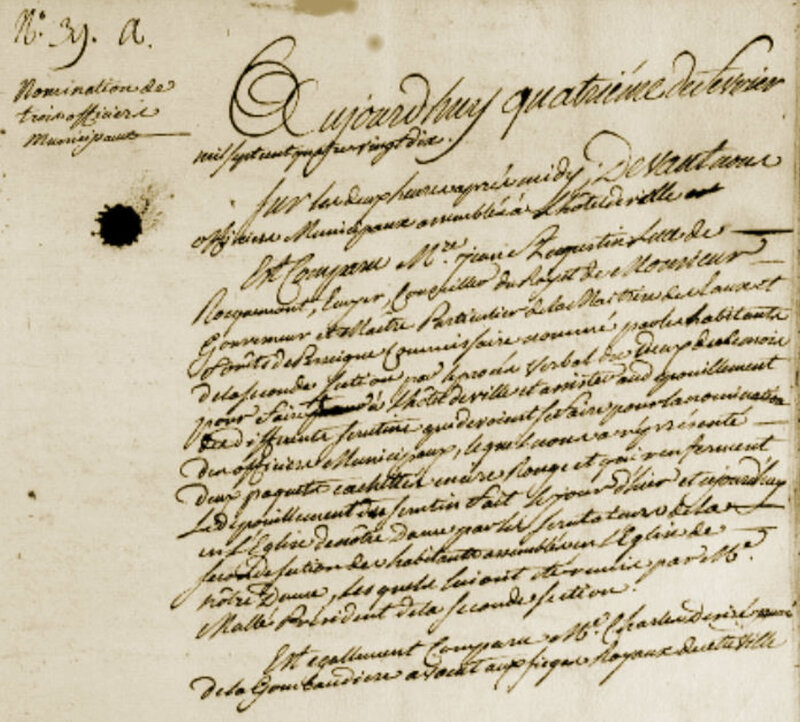 N.º 39. A.
Nomination de
trois officiers
Municipaux
Aujourdhuy quatrième de fevrier
mil sept cent quatre vingt dix.
sur les deux heures après midy, Devant nous
officiers Municipaux assemblés à L'hôtel de ville
Est Comparu M.re jean Augustin Luce de
Rocquemont, Ecuyer, Conseiller du Roy et de Monsieur
Gouverneur et Maitre Particulier de la Maitrise des Eaux et
forêts de Perseigne Commissaire nommé par les habitants
de la seconde Section par le procès Verbal du Deux de ce mois
pour se à L'hôtel de ville et assister au dépouillement
des différents scrutins qui devoient se faire pour la nomination
des officiers Municipaux, lequel nous a représenté
deux paquets cachettés en cire Rouge et qui renferment
Le dépouillement du scrutin fait le jour d'hier et aujourdhuy
en L'Eglise de nôtre Dame par les scrutateurs de la
seconde section des habitants assemblés en L'Eglise de
nôtre Dame, Lesquels lui ont été remis par M.e
Mallé Président de la seconde section.
Est egallement Comparu M.e Charles Desiré
de la Gombaudiere avocat aux sieges Royaux de cette ville